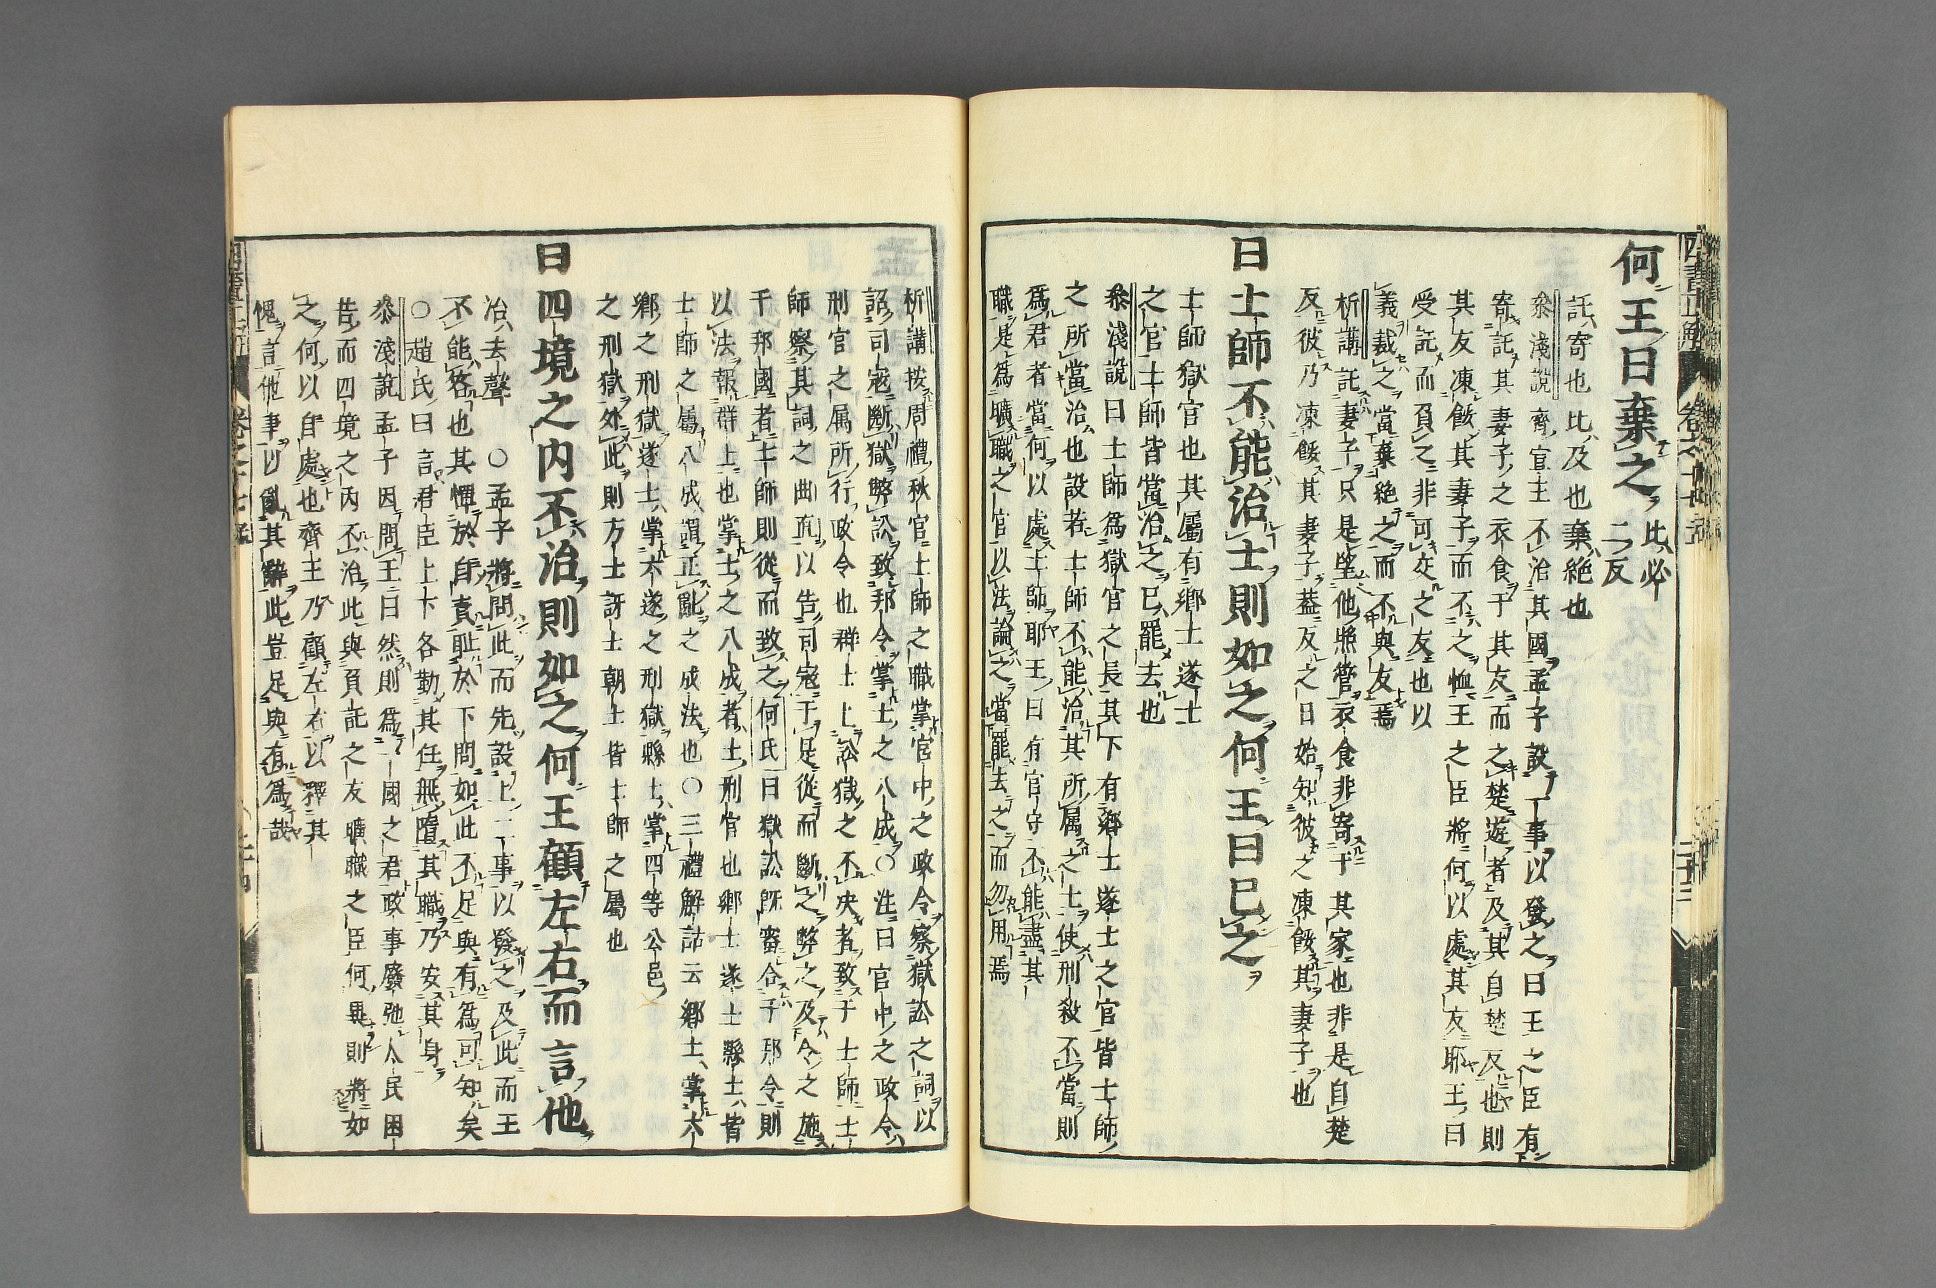 何王曰棄之 比必
二反
託寄也比及也棄絕也
叅淺說齊宣王不治其國孟子設一事以發之曰王之臣有
寄託其妻子之衣食于其友而之楚遊者及其自楚反也則
其友凍餒其妻子而不之恤王之臣將何以處其友耶王曰
受託而負之非可交之友也以
義裁之當棄絕之而不與友焉
析講託妻子只是望他照管衣食非寄于其家也非是自楚
反彼乃凍餒其妻子葢反之日始知彼之凍餒其妻子也
曰士師不能治士則如之何王曰已之
士師獄官也其屬有鄉士遂士
之官士師皆當治之已罷去也
叅淺說曰士師為獄官之長其下有鄉士遂士之官皆士師
之所當治也設若士師不能治其所属之士使刑殺不當則
為君者當何以處士師耶王曰有官守不能盡其
職是為曠職之官以法論之當罷去之而勿用焉
析講按周禮秋官士師之職掌官中之政令察獄訟之詞以
詔司寇斷獄弊訟致邦令掌士之八成○注曰官中之政令
刑官之属所行政令也群士上訟獄之不決者致于士師士
師察其詞之曲直以告司寇于是從而斷之弊之及令之施
于邦國者士師則從而致之何氏曰獄訟旣審合于邦令則
以法報群上也掌士之八成者士刑官也鄉士遂士縣士皆
士師之屬八成謂正亂之成法也○三禮解詁云鄉士掌六
鄉之刑獄遂士掌六遂之刑獄縣士掌四等公邑
之刑獄外此則方士訝士朝士皆士師之屬也
曰四境之內不治則如之何王顧左右而言他
治去聲 ○孟子將問此而先設上二事以發之及此而王
不能答也其憚於自責耻於下問如此不足與有為可知矣
○趙氏曰言君臣上下各勤其任無墮其職乃安其身
叅淺說孟子因問王曰然則為一國之君政事廢弛人民困
苦而四境之內不治此與負託之友曠職之臣何異則將如
之何以自處也齊王乃顧左右以釋其
愧言他事以亂其辭此豈足與有為哉